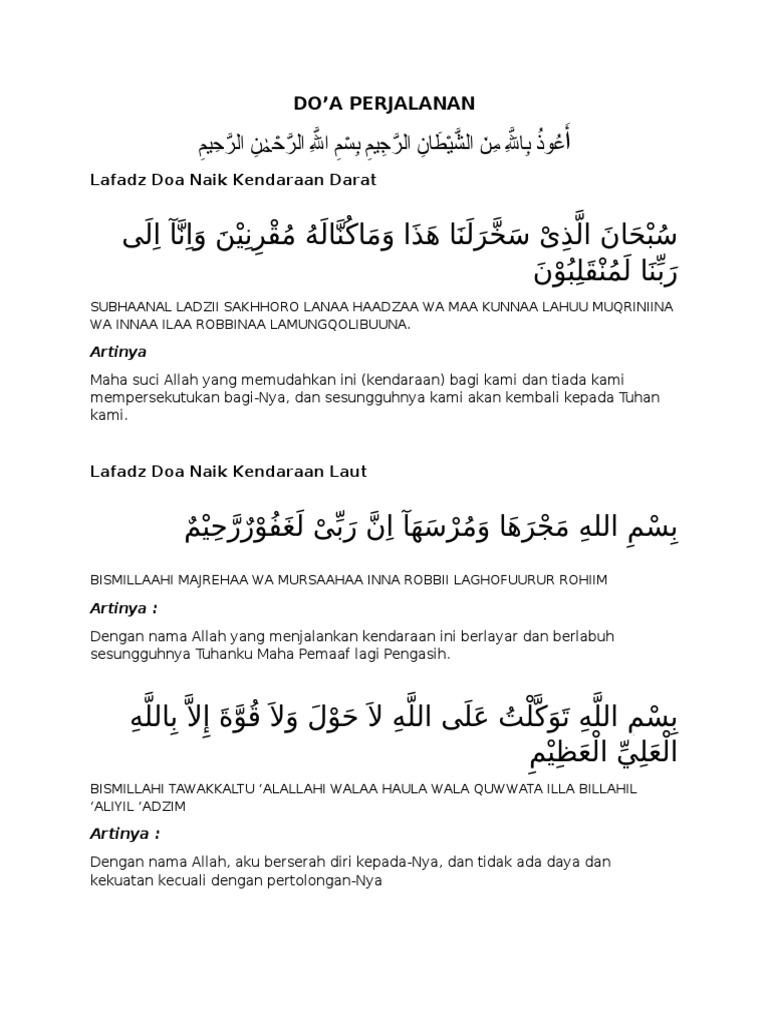 DO’A PERJALANAN
أَعُوذُ بِاللَّهِ مِنَ الشَّيْطَانِ الرَّجِيمِ بِسْمِ اللَّهِ الرَّحْمٰنِ الرَّحِيمِ
Lafadz Doa Naik Kendaraan Darat
سُبْحَانَ الَّذِىْ سَخَّرَلَنَا هَذَا وَمَاكُنَّالَهُ مُقْرِنِيْنَ وَاِنَّآ اِلَى
رَبِّنَا لَمُنْقَلِبُوْنَ
SUBHAANAL LADZII SAKHHORO LANAA HAADZAA WA MAA KUNNAA LAHUU MUQRINIINA
WA INNAA ILAA ROBBINAA LAMUNGQOLIBUUNA.
Artinya
Maha suci Allah yang memudahkan ini (kendaraan) bagi kami dan tiada kami
mempersekutukan bagi-Nya, dan sesungguhnya kami akan kembali kepada Tuhan
kami.
Lafadz Doa Naik Kendaraan Laut
بِسْمِ اللهِ مَجْرَهَا وَمُرْسَهَآ اِنَّ رَبِّىْ لَغَفُوْرٌرَّحِيْمٌ
BISMILLAAHI MAJREHAA WA MURSAAHAA INNA ROBBII LAGHOFUURUR ROHIIM
Artinya :
Dengan nama Allah yang menjalankan kendaraan ini berlayar dan berlabuh
sesungguhnya Tuhanku Maha Pemaaf lagi Pengasih.
بِسْمِ اللَّهِ تَوَكَّلْتُ عَلَى اللَّهِ لاَ حَوْلَ وَلاَ قُوَّةَ إِلاَّ بِاللَّهِ
الْعَلِيِّ الْعَظِيْمِ
BISMILLAHI TAWAKKALTU ‘ALALLAHI WALAA HAULA WALA QUWWATA ILLA BILLAHIL
‘ALIYIL ‘ADZIM
Artinya :
Dengan nama Allah, aku berserah diri kepada-Nya, dan tidak ada daya dan
kekuatan kecuali dengan pertolongan-Nya